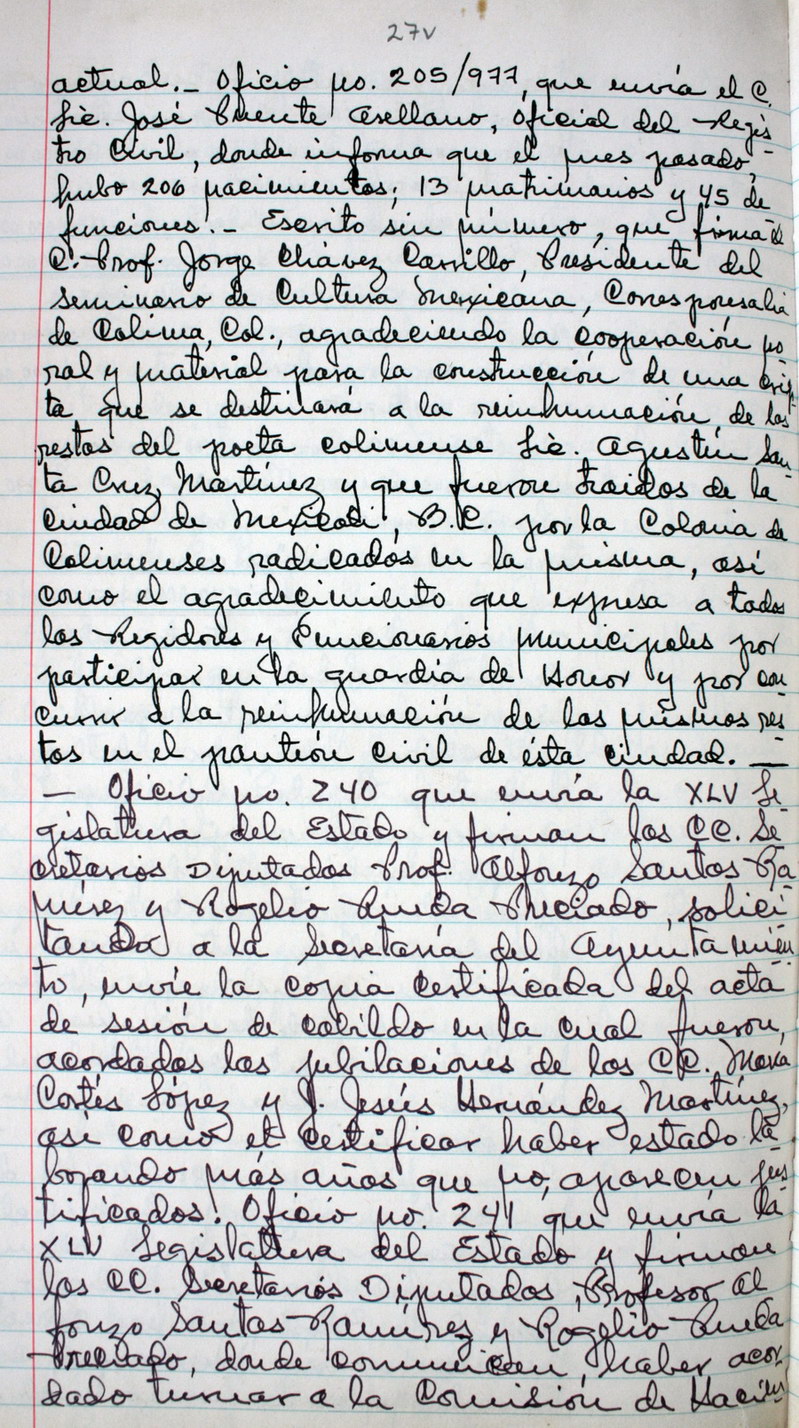 27v
actual._ Oficio no. 205/977, que envía el C.
Lic. José Puente Arellano, Oficial del Regis
tro Civil, donde informa que el mes pasado,
hubo 206 nacimientos; 13 matrimonios y 45 de
funciones._ Escrito sin número, que firma el
C. Prof. Jorge Chávez Carrillo, Presidente del
Seminario de Cultura Mexicana, Corresponsalía
de Colima, Col., agradeciendo la cooperación mo
ral y material para la construcción de una crip
ta que se destinará a la reinhumación de los
restos del poeta colimense Lic. Agustín San
ta Cruz Martínez y que fueron traidos de la
ciudad de Mexicali, B.C. por la Colonia de
Colimenses radicados en la misma, así
como el agradecimiento que expresa a todos
los Regidores y Funcionarios municipales por
participar en la guardia de Honor y por con
currir a la reinhumación de los mismos res
tos en el panteón civil de ésta ciudad. _
_ Oficio no. 240 que envía la XLV Le
gislatura del Estado y firman los CC. Se
cretarios Diputados Prof. Alfonzo Santos Ra
mírez y Rogelio Rueda Preciado, solici
tando a la Secretaría del Ayuntamien
to, envíe la copia certificada del acta
de sesión de cabildo en la cual fueron,
acordados las jubilaciones de los CC. María
Cortés López y J. Jesús Hernández Martínez,
así como el certificar haber estado la
borando más años que no, aparecen jus
tificados. Oficio no. 241 que envía la
XLV Legislattura del Estado y firman
los CC. Secretarios Diputados, Profesor Al
fonzo Santos Ramírez y Rogelio Rueda
Preciado, donde comunican, haber acor
dado turnar a la Comisión de Hacien